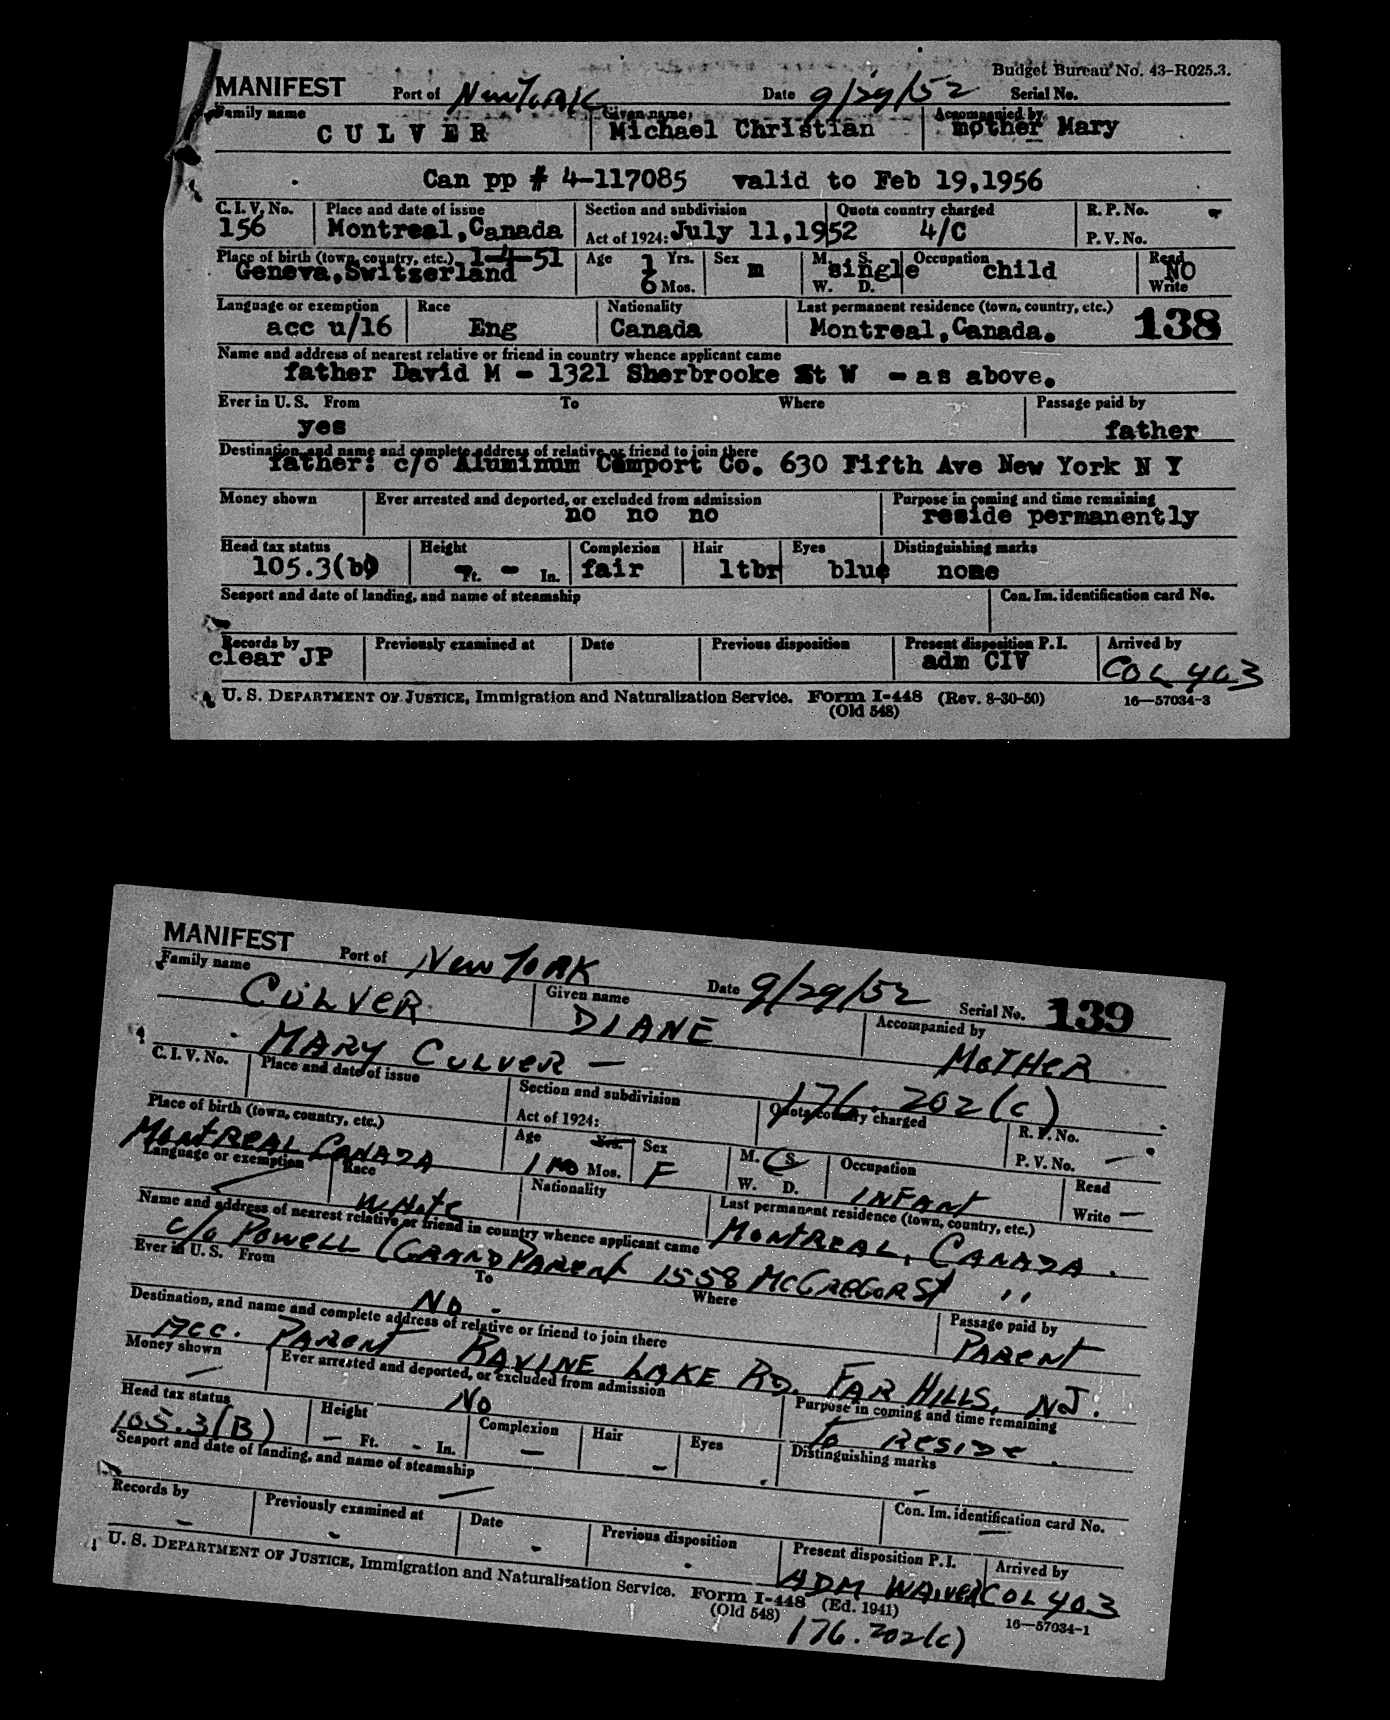 Budget Bureau No. 43-R025.3.
MANIFEST Port of New York Date 9/29/52 Serial No.
Family name Given name Accompanied by
CULVER Michael Christian mother Mary
Can pp # 4-117085 valid to Feb 19,1956
C. I. V. No. Place and date of issue Section and subdivision Quota country charged R. P. No.
156 Montreal,Canada Act of 1924: July 11,1952 4/C P. V. No.
Place of birth (town, country, etc.) 1-4-51 Age 1 Yrs. Sex M. S. Occupation Read
Geneva,Switzerland 6 Mos. m single W. D. child NO Write
Language or exemption Race Nationality Last permanent residence (town, country, etc.)
acc u/16 Eng Canada Montreal,Canada. 138
Name and address of nearest relative or friend in country whence applicant came
father David M - 1321 Sherbrooke St W - as above.
Ever in U. S. From To Where Passage paid by
yes father
Destination, and name and complete address of relative or friend to join there
father: c/o Aluminum Comport Co. 630 Fifth Ave New York N Y
Money shown Ever arrested and deported, or excluded from admission Purpose in coming and time remaining
no no no reside permanently
Head tax status Height Complexion Hair Eyes Distinguishing marks
105.3(b) - Ft. - In. fair ltbr blue none
Seaport and date of landing, and name of steamship Con. Im. identification card No.
Records by Previously examined at Date Previous disposition Present disposition P. I. Arrived by
clear JP adm CIV COL 403
U. S. DEPARTMENT OF JUSTICE, Immigration and Naturalization Service. Form I-448 (Rev. 8-30-50) 16—57034-3
(Old 548)
MANIFEST Port of New York Date 9/29/52 Serial No. 139
Family name Given name Accompanied by
CULVER DIANE MOTHER
MARY CULVER — 176.202(c)
C. I. V. No. Place and date of issue Section and subdivision Quota country charged R. P. No.
Act of 1924: P. V. No. —
Place of birth (town, country, etc.) Age Yrs. Sex M. S. Occupation Read
MONTREAL CANADA 1 MO Mos. F W. D. INFANT Write —
Language or exemption Race Nationality Last permanent residence (town, country, etc.)
White MONTREAL, CANADA.
Name and address of nearest relative or friend in country whence applicant came
c/o POWELL (GRANDPARENT 1558 McGREGOR ST ''
Ever in U. S. From To Where Passage paid by
No. PARENT
Destination, and name and complete address of relative or friend to join there
Acc. PARENT RAVINE LAKE RD. FAR HILLS, NJ.
Money shown Ever arrested and deported, or excluded from admission Purpose in coming and time remaining
— No To RESIDE.
Head tax status Height Complexion Hair Eyes Distinguishing marks
105.3(B) — Ft. - In. — — . -
Seaport and date of landing, and name of steamship Con. Im. identification card No.
— —
Records by Previously examined at Date Previous disposition Present disposition P. I. Arrived by
- - - . ADM WAIVER COL 403
U. S. DEPARTMENT OF JUSTICE, Immigration and Naturalization Service. Form I-448 (Ed. 1941) 16—57034-1
(Old 548) 176.202(c)